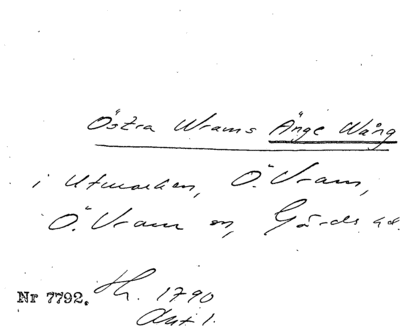 Östra Wrams Änge Wång
i Utmarken, Ö. Vram,
Ö. Vram sn, Gärds hd.
Nr 7792. Sk. 1790
Akt 1.